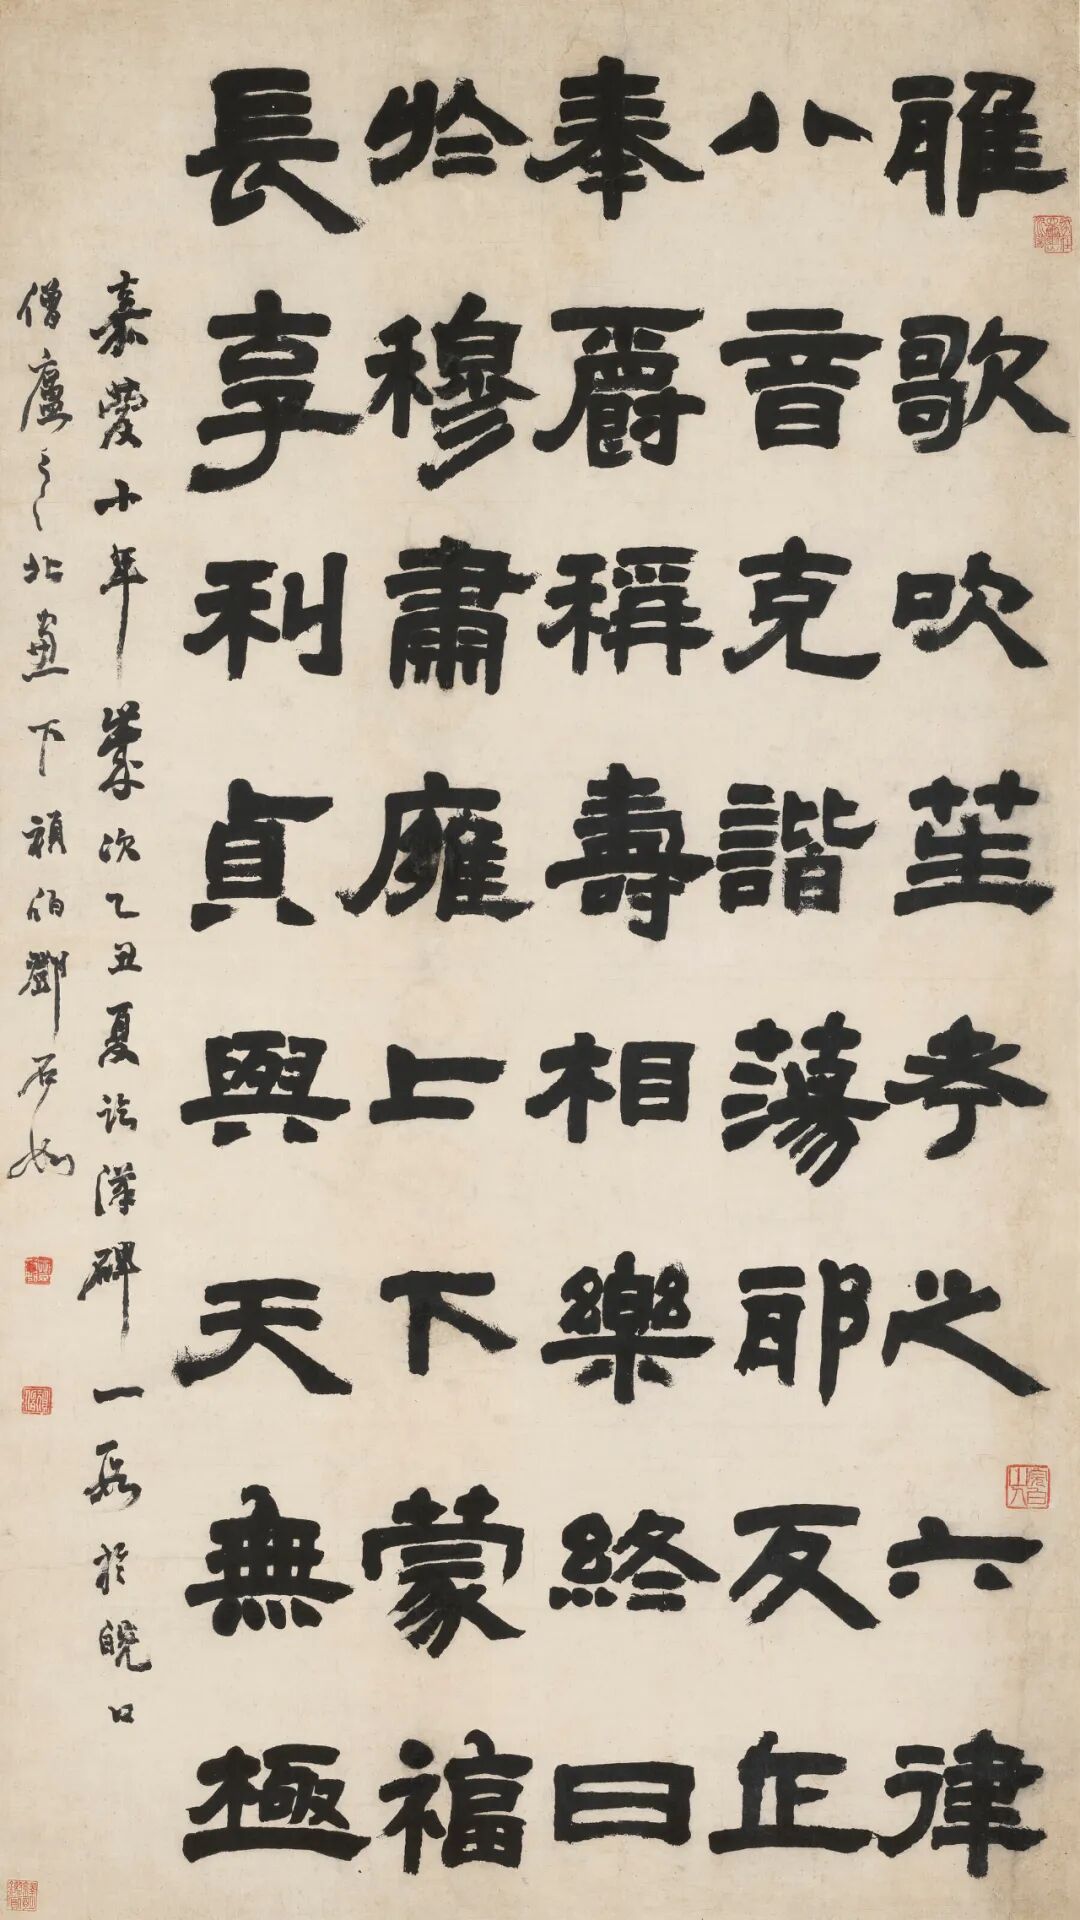 雅歌吹笙考之六律
八音克諧蕩邪反正
奉爵稱壽相樂終日
於穆肅廱上下蒙福
長享利貞與天無極
嘉慶十年歲次乙丑夏臨漢碑一段於皖口
僧廬之北窗下頑伯鄧石如